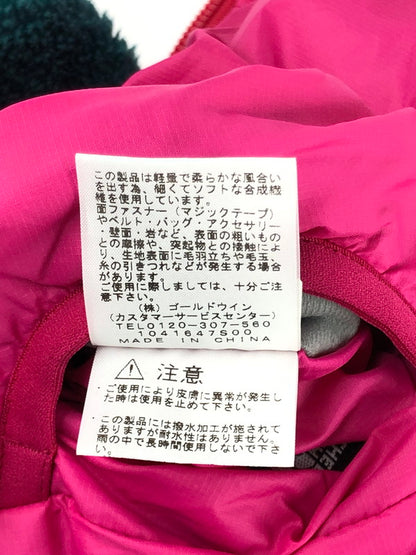 この製品は軽量で柔らかな風合い
を出す為、細くてソフトな合成繊
維を使用しています。
面ファスナー（マジックテープ）
やベルト・バッグ・アクセサリー
・壁面・岩など、表面の粗いもの
との摩擦や、突起物との接触によ
り、生地表面に毛羽立ちや毛玉、
糸の引つれなどが発生する場合
があります。
ご着用に際しましては、十分ご注
意下さい。
（株）ゴールドウイン
（カスタマーサービスセンター）
TEL0120-307-560
1041647S00
MADE IN CHINA
注意
・ご使用により皮膚に異常が発生し
た時は使用を止めて下さい。
・この製品には撥水加工が施されて
おりますが耐水性はありません。
雨の中で長時間使用しないで下さい。
THE